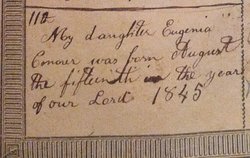 11th
My daughter Eugenia
Conover was born August
the fifteenth in the year
of our Lord 1845